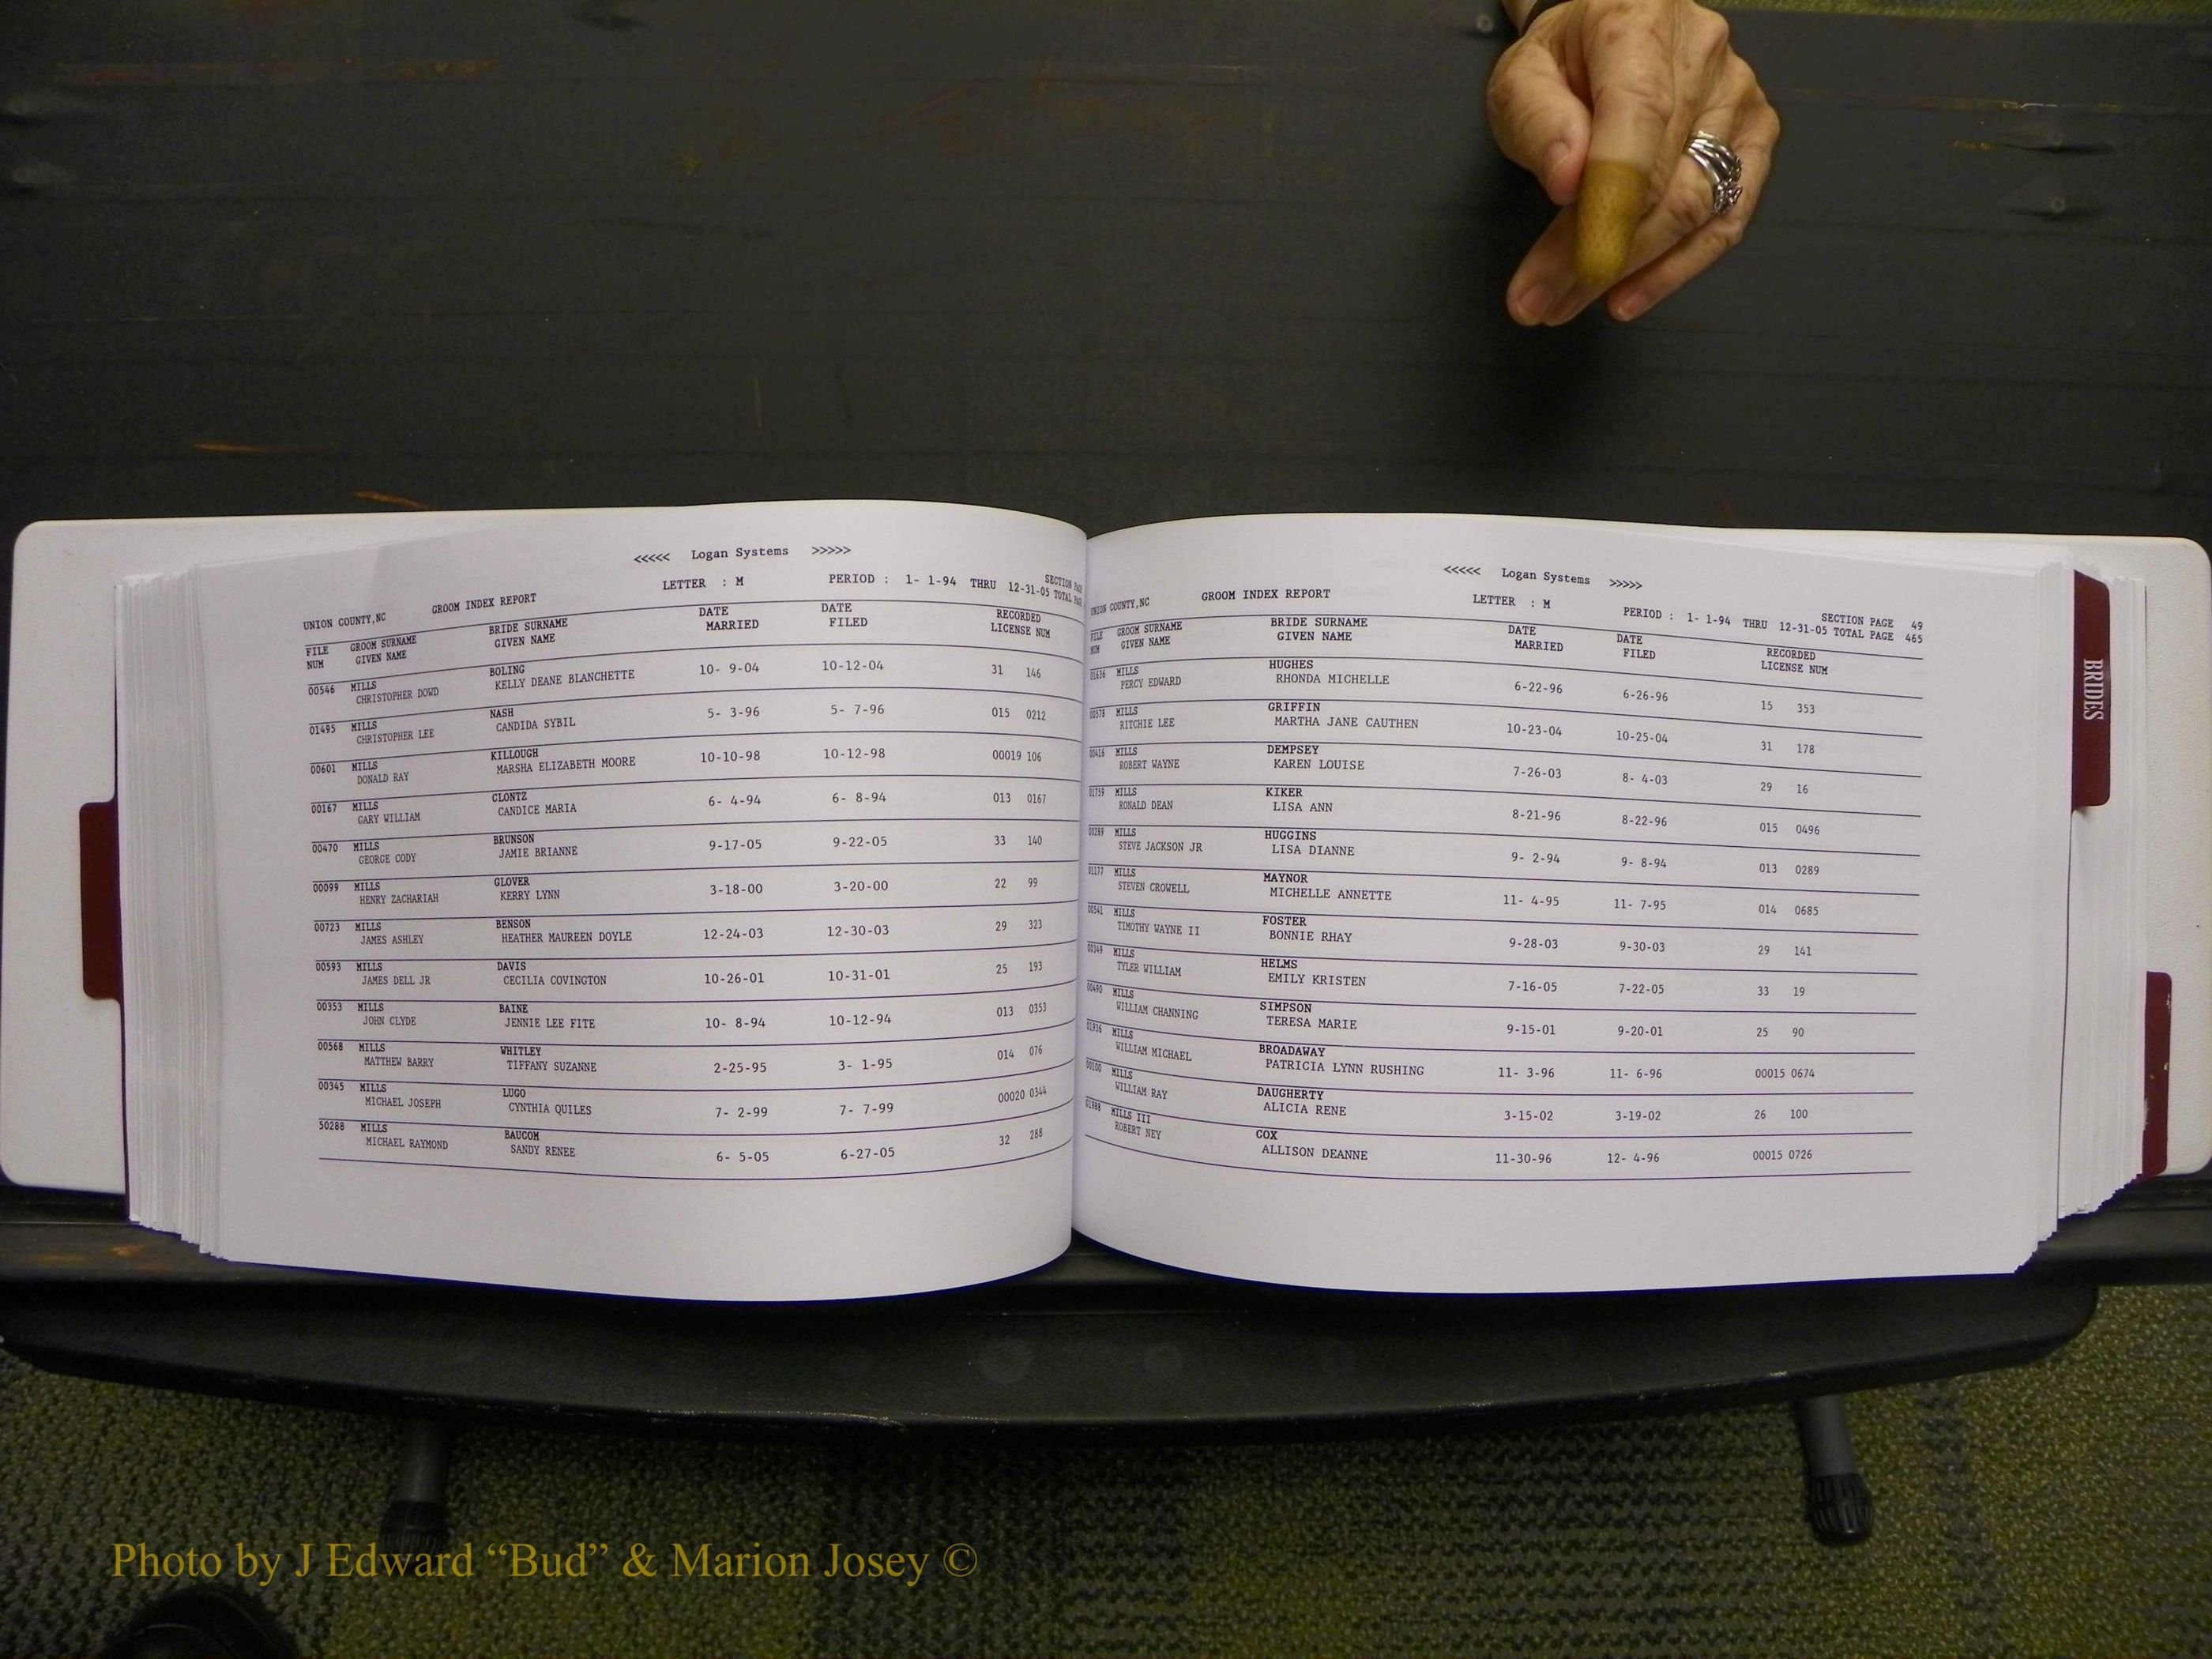 <<<<< Logan Systems >>>>>
UNION COUNTY,NC GROOM INDEX REPORT LETTER : M PERIOD : 1- 1-94 THRU 12-31-05 SECTION
TOTAL
FILE GROOM SURNAME BRIDE SURNAME DATE DATE RECORDED
NUM GIVEN NAME GIVEN NAME MARRIED FILED LICENSE NUM
00546 MILLS BOLING 10- 9-04 10-12-04 31 146
CHRISTOPHER DOWD KELLY DEANE BLANCHETTE
01495 MILLS NASH 5- 3-96 5- 7-96 015 0212
CHRISTOPHER LEE CANDIDA SYBIL
00601 MILLS KILLOUGH 10-10-98 10-12-98 00019 106
DONALD RAY MARSHA ELIZABETH MOORE
00167 MILLS CLONTZ 6- 4-94 6- 8-94 013 0167
GARY WILLIAM CANDICE MARIA
00470 MILLS BRUNSON 9-17-05 9-22-05 33 140
GEORGE CODY JAMIE BRIANNE
00099 MILLS GLOVER 3-18-00 3-20-00 22 99
HENRY ZACHARIAH KERRY LYNN
00723 MILLS BENSON 12-24-03 12-30-03 29 323
JAMES ASHLEY HEATHER MAUREEN DOYLE
00593 MILLS DAVIS 10-26-01 10-31-01 25 193
JAMES DELL JR CECILIA COVINGTON
00353 MILLS BAINE 10- 8-94 10-12-94 013 0353
JOHN CLYDE JENNIE LEE FITE
00568 MILLS WHITLEY 2-25-95 3- 1-95 014 076
MATTHEW BARRY TIFFANY SUZANNE
00345 MILLS LUGO 7- 2-99 7- 7-99 00020 0344
MICHAEL JOSEPH CYNTHIA QUILES
50288 MILLS BAUCOM 6- 5-05 6-27-05 32 288
MICHAEL RAYMOND SANDY RENEE
<<<<< Logan Systems >>>>>
UNION COUNTY,NC GROOM INDEX REPORT LETTER : M PERIOD : 1- 1-94 THRU 12-31-05 SECTION PAGE 49
TOTAL PAGE 465
FILE GROOM SURNAME BRIDE SURNAME DATE DATE RECORDED
NUM GIVEN NAME GIVEN NAME MARRIED FILED LICENSE NUM
01636 MILLS HUGHES 6-22-96 6-26-96 15 353
PERCY EDWARD RHONDA MICHELLE
00578 MILLS GRIFFIN 10-23-04 10-25-04 31 178
RITCHIE LEE MARTHA JANE CAUTHEN
00416 MILLS DEMPSEY 7-26-03 8- 4-03 29 16
ROBERT WAYNE KAREN LOUISE
01759 MILLS KIKER 8-21-96 8-22-96 015 0496
RONALD DEAN LISA ANN
00289 MILLS HUGGINS 9- 2-94 9- 8-94 013 0289
STEVE JACKSON JR LISA DIANNE
01177 MILLS MAYNOR 11- 4-95 11- 7-95 014 0685
STEVEN CROWELL MICHELLE ANNETTE
00541 MILLS FOSTER 9-28-03 9-30-03 29 141
TIMOTHY WAYNE II BONNIE RHAY
00349 MILLS HELMS 7-16-05 7-22-05 33 19
TYLER WILLIAM EMILY KRISTEN
00490 MILLS SIMPSON 9-15-01 9-20-01 25 90
WILLIAM CHANNING TERESA MARIE
01936 MILLS BROADAWAY 11- 3-96 11- 6-96 00015 0674
WILLIAM MICHAEL PATRICIA LYNN RUSHING
00100 MILLS DAUGHERTY 3-15-02 3-19-02 26 100
WILLIAM RAY ALICIA RENE
01988 MILLS III COX 11-30-96 12- 4-96 00015 0726
ROBERT NEY ALLISON DEANNE
BRIDES
Photo by J Edward “Bud” & Marion Josey ©